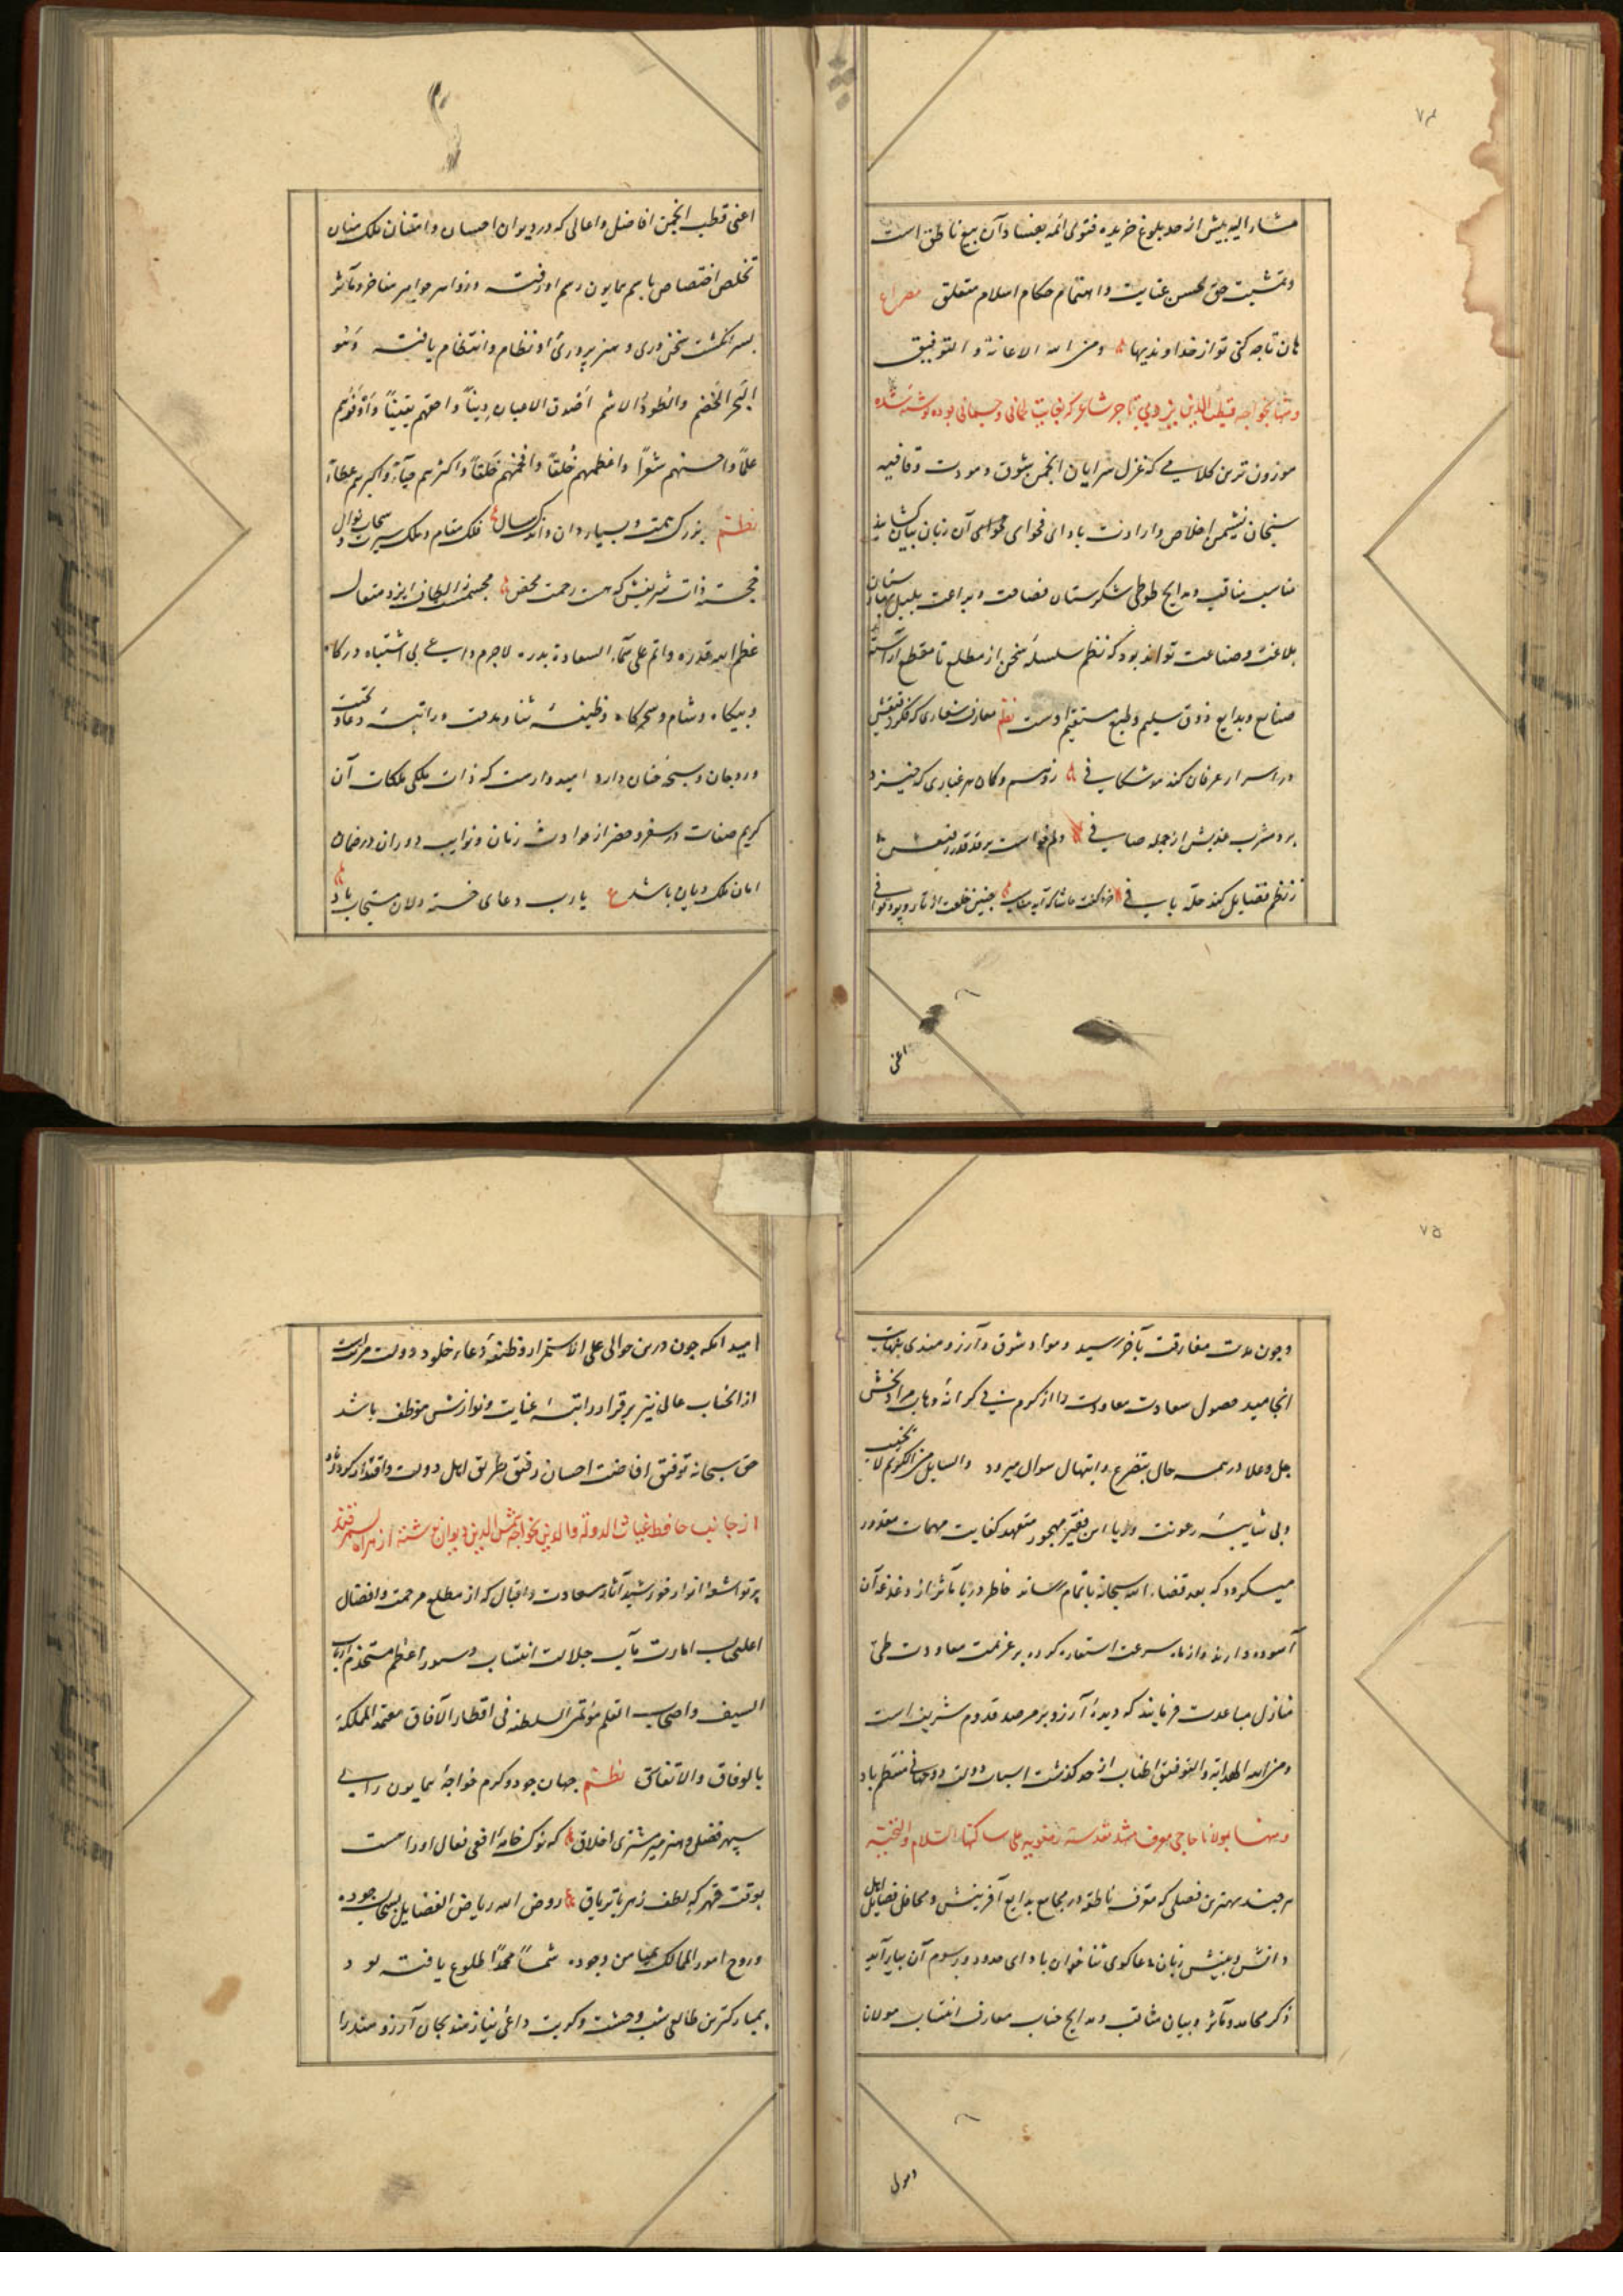 ۷۴
مشار الیه پیش از حد بلوغ خریده فتوی ائمه بفساد آن بیع ناطق است
و تمشیت حق بحسن عنایت و اهتمام حکام اسلام متعلق مصراع
هان تا چه کنی تو از خداوندیها و من الله الاعانة و التوفیق
بخواجه قطب الدین تاجر شاعر که بوده نوشته شده
موزون ترین کلامی که غزل سرایان انجمن شوق و مودت و قافیه
سنجان نشیمن اخلاص و ارادت بادای فحوای آن زبان بیان کشایند
مناسب مناقب و مدایح طوطی شکرستان فصاحت و براعت بلبل
بلاغت و صناعت تواند بود که نظم سلسله سخن از مطلع تا مقطع آراسته
صنایع و بدایع ذوق سلیم و طبع مستقیم اوست نظم معارف شعاری که فکر دقیقش
در اسرار عرفان کند موشکافی ز وهم و کمان هر غباری که خیزد
برد مشرب عذبش از جمله صافی دلم خواست بر قد قدر رفیعش
ز نظم فضایل کند حله بافی خرد گفت حاشا که آید مناسب چنین خلعت از تار و پود قوافی
اعنی
اعنی قطب انجمن افاضل و اعالی که در دیوان احسان و امتنان ملک منان
تخلص اختصاص باسم همایون رسم او رفته و زواهر جواهر مفاخر و مآثر
بسر انگشت سخن وری و هنر پروری او نظام و انتظام یافته و هو
البحر الخضم والطود الاشم اصدق الاعیان دینا و احقهم یقینا و اوفرهم
علما و احسنهم شعرا و اعظمهم خلقا و افخمهم خلقا و اکثرهم حیاء و اکبرهم عطاء
نظم بزرگ همت و بسیار دان و اندک سال فلک مقام و ملک سیرت و سحاب نوال
خجسته ذات شریفش که هست رحمت محض مجسمست ز الطاف ایزد متعال
عظم الله قدره و اتم علی سماء السعادة بدره لاجرم داعی بی اشتباه در گاه
و بیگاه و شام و سحرگاه وظیفه ثنا و مدحت و راتبه دعا و تحیت
ورد جان و سبحه جنان دارد امیدوارست که ذات ملکی ملکات آن
کریم صفات در سفر و حضر از حوادث زمان و نوایب دوران در ضمان
امان ملک دیان باشد ع یارب دعای خسته دلان مستجاب باد
۷۵
و چون مدت مفارقت بآخر رسید و مواد شوق و آرزومندی بنهایت
انجامید حصول سعادت معاودت را از کرم بی کرانه وهاب مراد بخش
جل و علا در همه حال بتضرع و ابتهال سوال میرود والسایل من الکریم لا یخیب
و بی شایبه رعونت و ریا این فقیر مهجور متعهد کفایت مهمات مقدور
میکردد که بعد قضاء الله سبحانه باتمام رساند خاطر دریا مآثر از دغدغه آن
آسوده دارند و از باد سرعت استعاره کرده بر عزیمت معاودت طی
منازل مباعدت فرمایند که دیده آرزو بر مرصد قدوم شریف است
و من الله الهدایة و التوفیق اطناب از حد گذشت اسباب دولت دوجهانی منتظم باد
و منها بمولانا حاجی معرف مشهد مقدسه رضویه علی ساکنها السلام والتحیه
هر چند بهترین فصلی که معرف ناطقه در مجامع بدایع آفرینش و محافل فضایل اهل
دانش و بینش زبان دعاگوی ثنا خوان بادای حدود و رسوم آن بیاراید
ذکر محامد و مآثر و بیان مناقب و مدایح جناب معارف انتساب مولانا
امید آنکه چون درین حوالی علی الاستمرار وظیفه دعاء خلود دولت مرتب است
از آن جناب عالی نیز برقرار راتبه عنایت و نوازش موظف باشد
حق سبحانه توفیق افاضت احسان رفیق طریق اهل دولت و اقتدار کرداناد
از جانب حافظ غیاث الدولة والدین بخواجه شمس الدین دیوان نوشته از هراة بسمرقند
پرتو اشعه انوار خورشید آثار سعادت و اقبال که از مطلع مرحمت و افضال
اعلیجناب امارت مآب جلالت انتساب دستور اعظم مستخدم ارباب
السیف و اصحاب القلم مؤتمن السلطنه فی اقطار الآفاق معتمد المملکة
بالوفاق والاتفاق نظم جهان جود و کرم خواجه همایون رای
سپهر فضل و هنر میر مشتری اخلاق که نوک خامه افعی فعال او راست
بوقت قهر که لطف زهر با تریاق روض الله ریاض الفضایل بسحاب جوده
و روح امور الممالک بمیامن وجوده شمسا محمدا طلوع یافته بود
بمبارکترین طالعی شب وحشت و کربت داعی نیازمند بجان آرزومند را